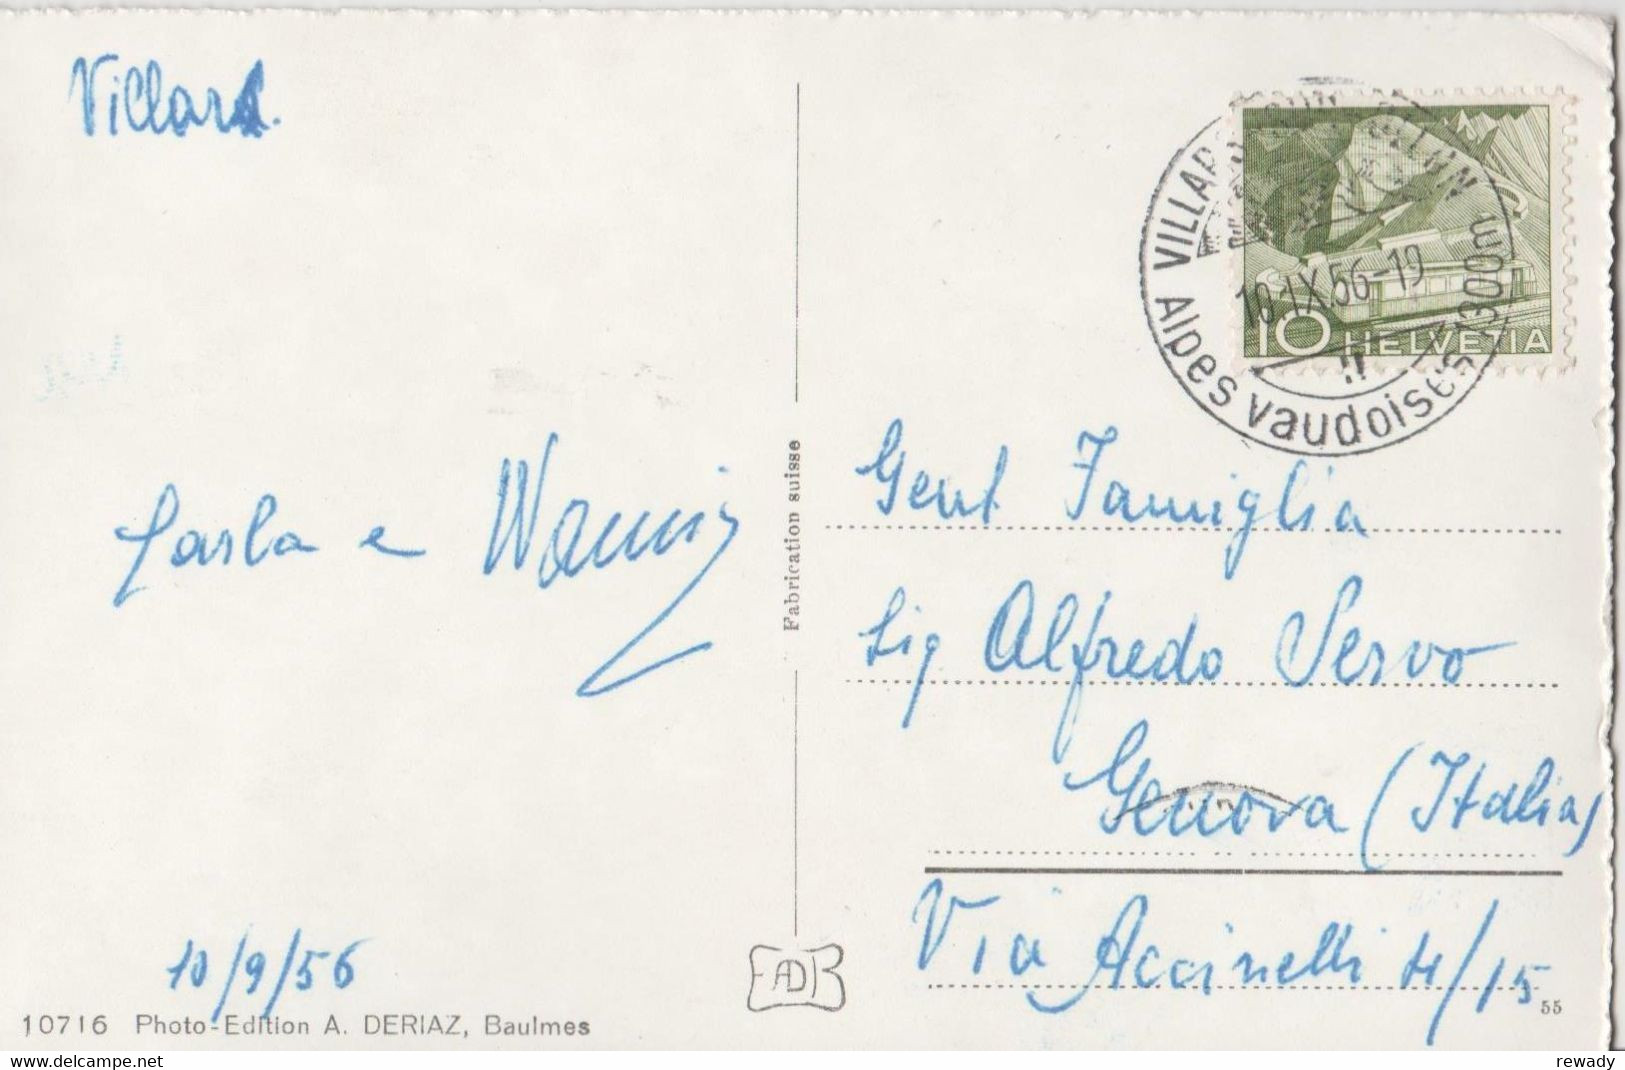 Villars.
Carla e Nanni
10/9/56
10716 Photo-Edition A. DERIAZ, Baulmes
Fabrication suisse
EADB
VILLARS
10.IX.56-19
Alpes vaudoises 1300m
10 HELVETIA
Gent Famiglia
Sig Alfredo Servo
Genova (Italia)
Via Accinelli 4/15
55
rewady
www.delcampe.net